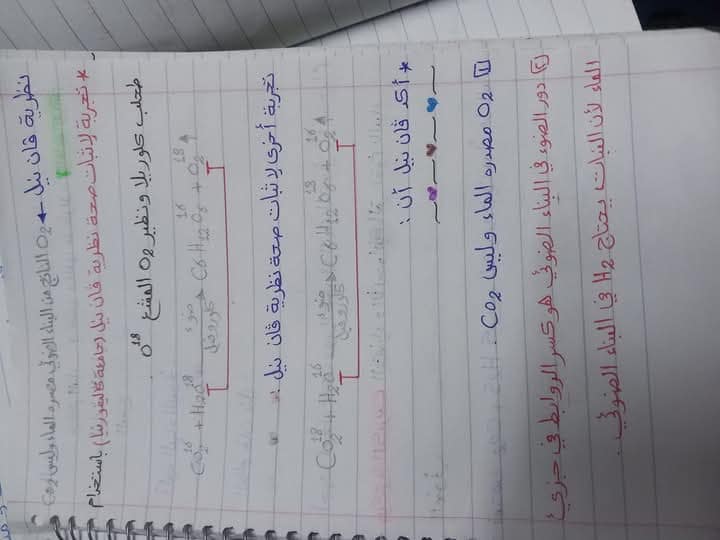 نظرية ڤان نيل ← O2 الناتج من البناء الضوئي مصدره الماء وليس CO2
* تجربة لإثبات صحة نظرية ڤان نيل (جامعة كاليفورنيا) باستخدام
طحلب كلوريلا ونظير O2 المشع O18
CO2 16 + H2O 18 ضوء كلوروفيل → C6H12O6 16 + O2 18 ↑
تجربة أخرى لإثبات صحة نظرية ڤان نيل :
CO2 18 + H2O 16 ضوء كلوروفيل → C6H12O6 18 + O2 16 ↑
* أكد ڤان نيل أن :
1 O2 مصدره الماء وليس CO2
2 دور الضوء في البناء الضوئي هو كسر الروابط في جزيئ
الماء لأن النبات يحتاج H2 في البناء الضوئي .